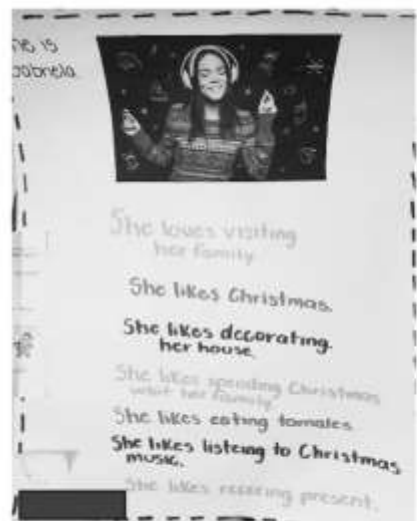 he is
abriela
She loves visiting
her family
She likes Christmas.
She likes decorating.
her house.
She likes spending Christmas
her family
She likes eating tamales
She likes listeing to Christmas
music.
She likes present.